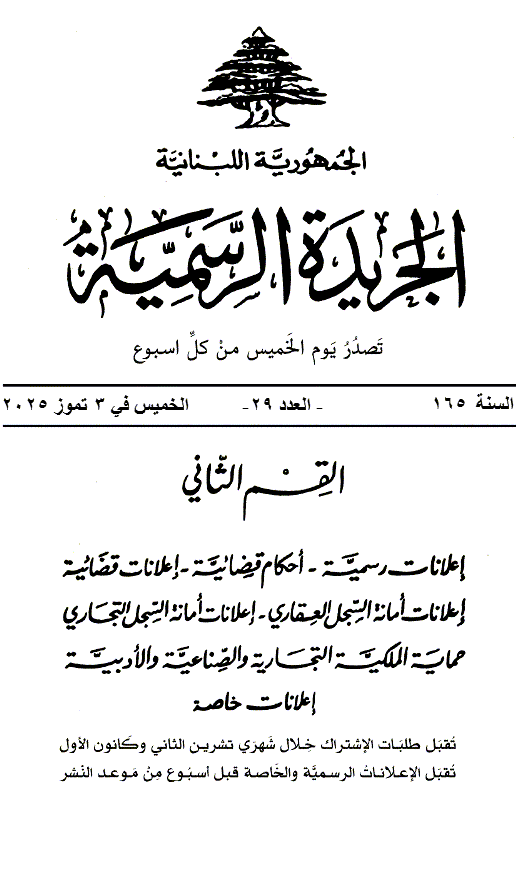 الجمهورية اللبنانية
الجريدة الرسمية
تَصدُرُ يَوم الخَميس منْ كلِّ اسبوع
السنة ١٦٥ - العدد ٢٩ - الخميس في ٣ تموز ٢٠٢٥
القِسْم الثّاني
إعلانات رسميَّة - أحكام قضائيَّة - إعلانات قضائية
إعلانات أمانة السِّجل العقاري - إعلانات أمانة السِّجل التجاري
حماية الملكيَّة التجارية والصِّناعيَّة والأدبيَّة
إعلانات خاصة
تُقبَل طلبَات الإشتراك خِلال شَهرَي تشرين الثاني وكَانون الأول
تُقبَل الإعلاناتُ الرسميَّة والخَاصة قبل أسبُوع مِنْ مَوعد النَشر